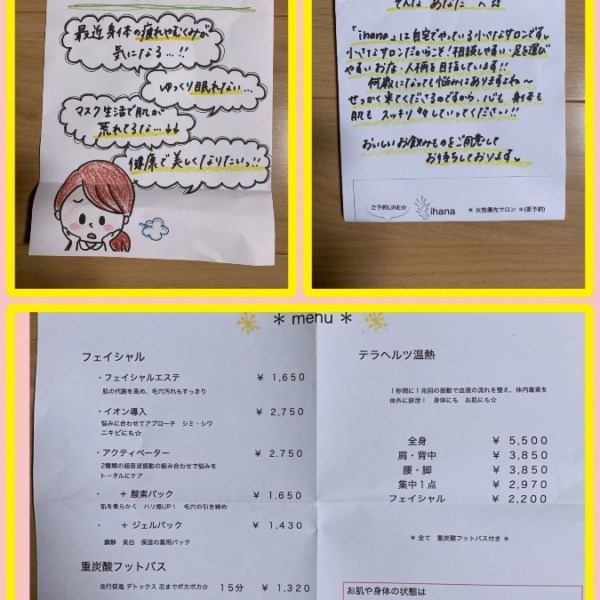 最近身体の疲れやむくみが
気になる…!!
ゆっくり眠れない…
マスク生活で肌が
荒れてるな…↓↓
健康で美しくなりたいっ!!
そんな あなた へ☆
「ihana」は自宅でやっている小さなサロンです。
小さなサロンだからこそ!相談しやすい・足を運び
やすいお店・人柄を目指しています!!
何歳になっても悩みはありますよね〜
せっかく来てくださるのですから、心も 身体も
肌も スッキリ していってください!!
おいしいお飲みものをご用意して
お待ちしております
ご予約LINE☆
ihana
* 女性優先サロン *(要予約)
* menu *
フェイシャル
・フェイシャルエステ ¥ 1,650
肌の代謝を高め、毛穴汚れもすっきり
・イオン導入 ¥ 2,750
悩みに合わせてアプローチ シミ・シワ
ニキビにも☆
・アクティベーター ¥ 2.750
2種類の超音波振動の組み合わせで悩みを
トータルにケア
・ + 酸素パック ¥ 1.650
肌を柔らかく ハリ感UP! 毛穴の引き締め
・ + ジェルパック ¥ 1,430
鎮静 美白 保湿の薬用パック
重炭酸フットバス
血行促進 デトックス 芯までポカポカ☆ 15分 ¥ 1,320
テラヘルツ温熱
1秒間に1兆回の振動で血液の流れを整え、体内毒素を
体外に排泄! 身体にも お肌にも☆
全身 ¥ 5,500
肩・背中 ¥ 3,850
腰・脚 ¥ 3,850
集中1点 ¥ 2,970
フェイシャル ¥ 2,200
* 全て 重炭酸フットバス付き *
お肌や身体の状態は